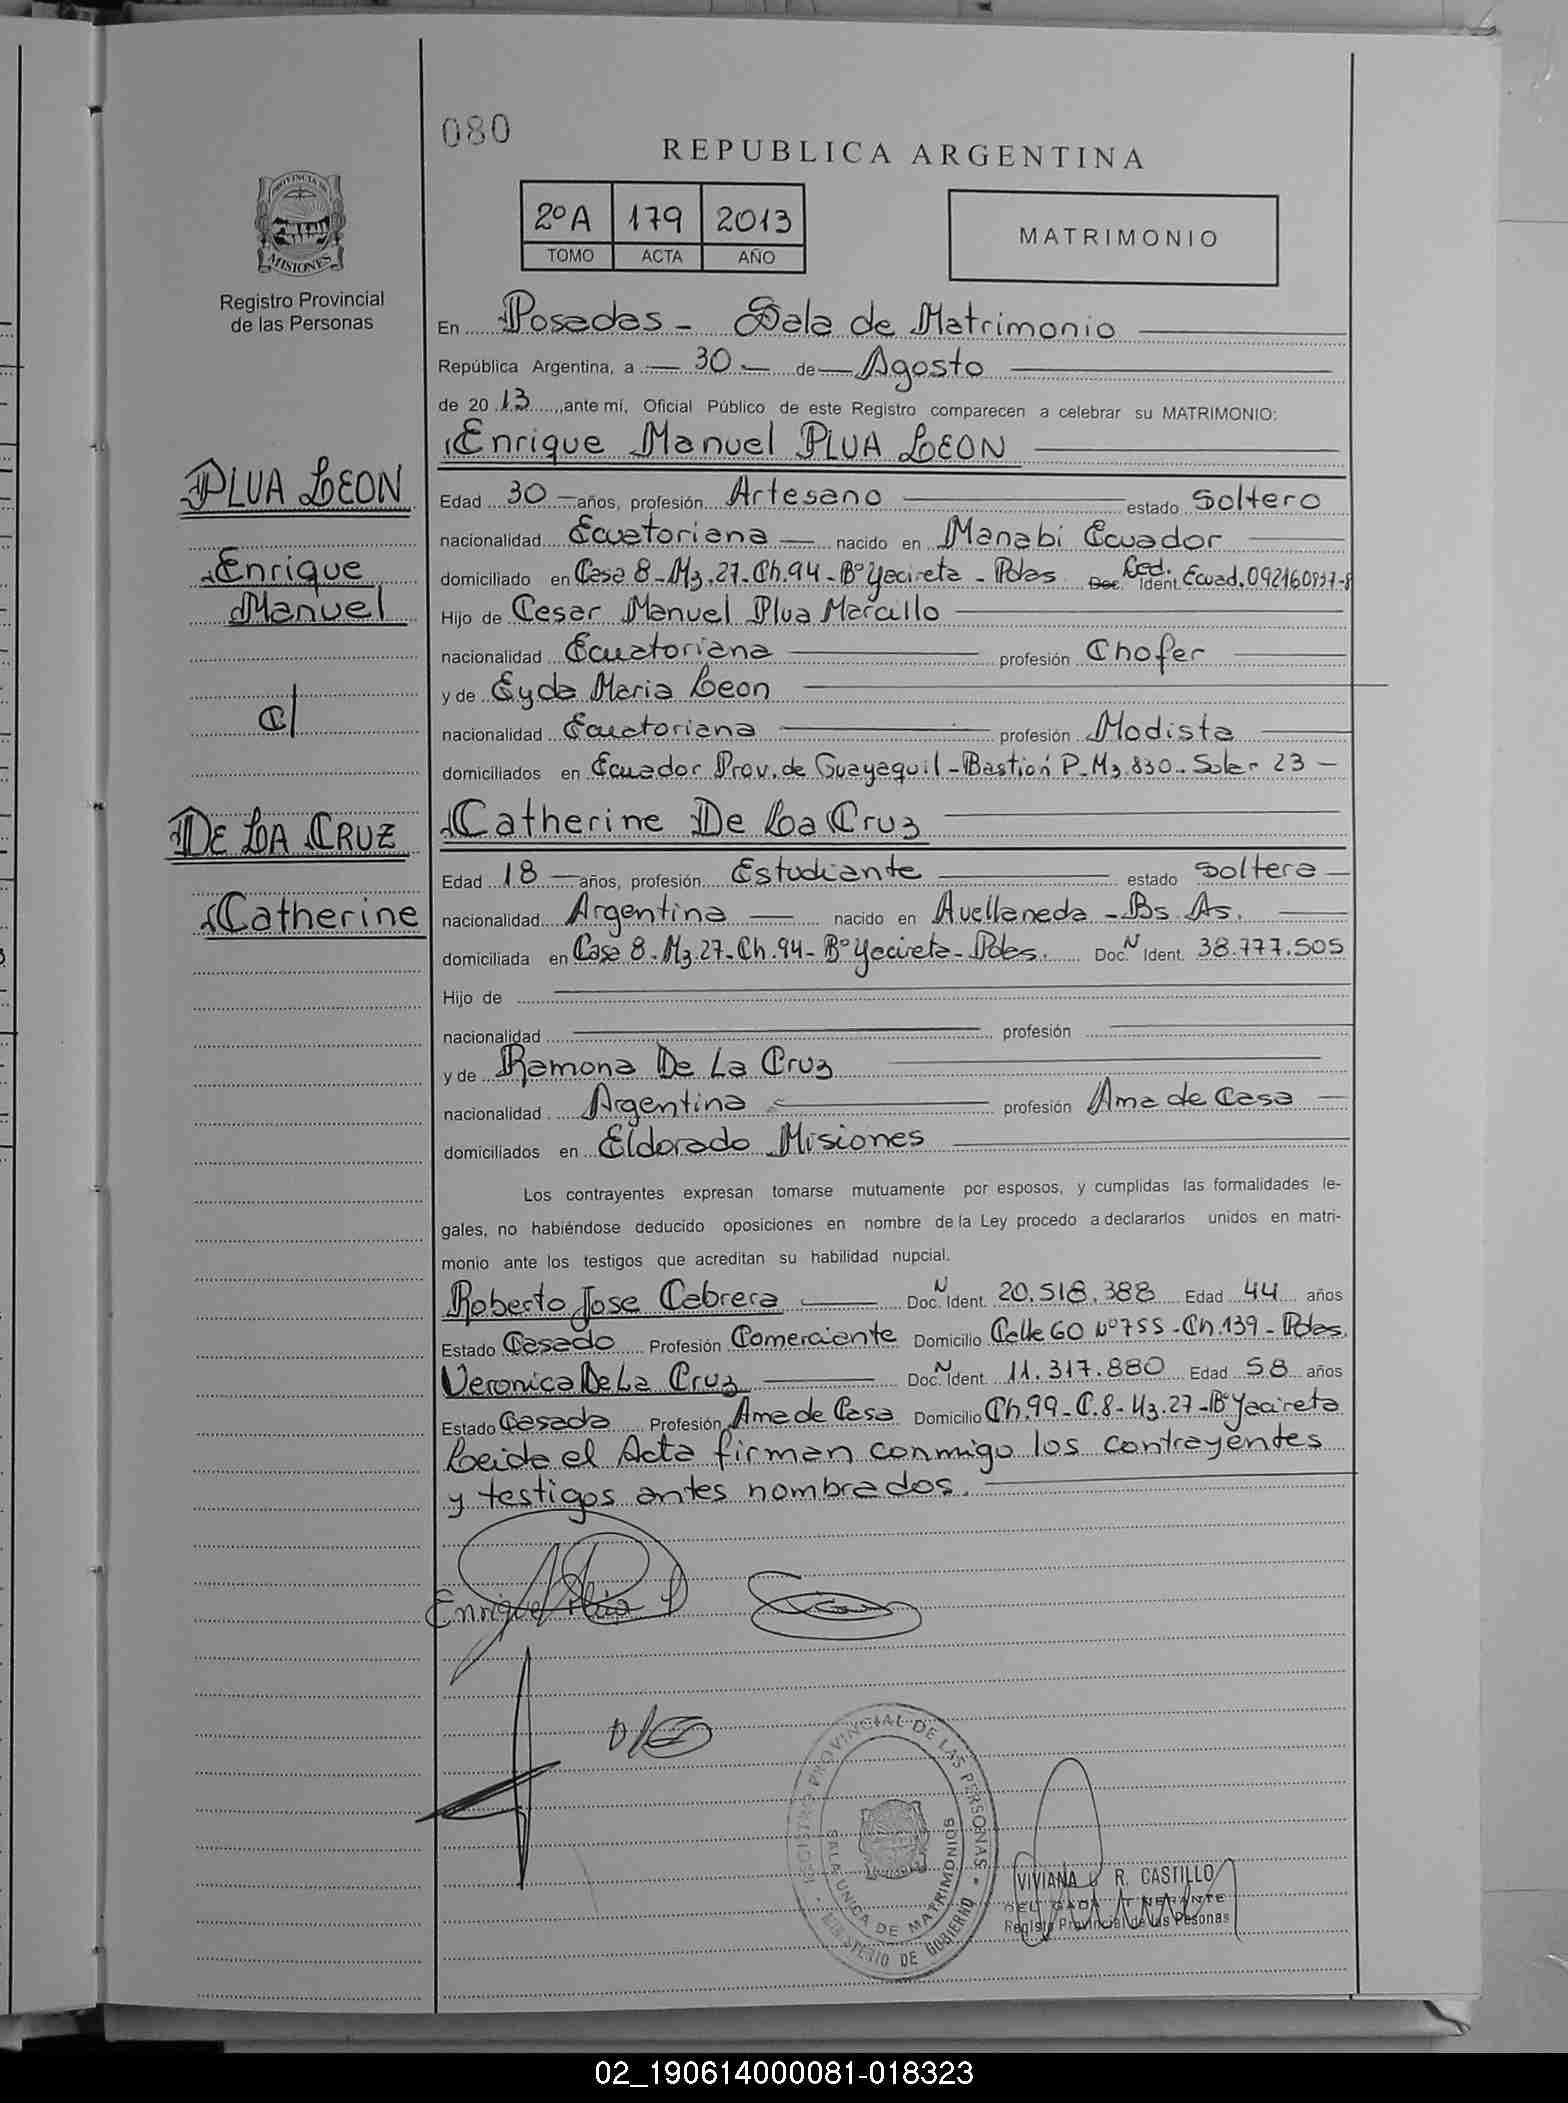 080
REPUBLICA ARGENTINA
2º A 179 2013
TOMO ACTA AÑO
MATRIMONIO
PROVINCIA DE
MISIONES
Registro Provincial
de las Personas
En Posadas - Sala de Matrimonio
República Argentina, a 30 de Agosto
de 20 13, ante mí, Oficial Público de este Registro comparecen a celebrar su MATRIMONIO:
Enrique Manuel PLUA LEON
PLUA LEON
Enrique
Manuel
C/
DE LA CRUZ
Catherine
Edad 30 años, profesión Artesano estado Soltero
nacionalidad Ecuatoriana nacido en Manabi Ecuador
domiciliado en Casa 8 - Mz. 27 - Ch. 94 - Bº Yacireta - Pdas Doc. Ced. Ident. Ecuad.
Hijo de Cesar Manuel Plua Marcillo
nacionalidad Ecuatoriana profesión Chofer
y de Eyda Maria Leon
nacionalidad Ecuatoriana profesión Modista
domiciliados en Ecuador Prov. de Guayaquil - Bastión P - Mz. 830 - Solar 23
Catherine De La Cruz
Edad 18 años, profesión Estudiante estado Soltera
nacionalidad Argentina nacido en Avellaneda - Bs. As.
domiciliada en Casa 8 - Mz. 27 - Ch. 94 - Bº Yacireta - Pdas. Doc. N Ident. 38.777.505
Hijo de
nacionalidad profesión
y de Ramona De La Cruz
nacionalidad Argentina profesión Ama de Casa
domiciliados en Eldorado Misiones
Los contrayentes expresan tomarse mutuamente por esposos, y cumplidas las formalidades le-
gales, no habiéndose deducido oposiciones en nombre de la Ley procedo a declararlos unidos en matri-
monio ante los testigos que acreditan su habilidad nupcial.
Roberto Jose Cabrera Doc. N Ident. 20.518.388 Edad 44 años
Estado Casado Profesión Comerciante Domicilio Calle 60 Nº 755 - Ch. 139 - Pdas.
Veronica De La Cruz Doc. N Ident. 11.317.880 Edad 58 años
Estado Casada Profesión Ama de Casa Domicilio Ch. 99 - C. 8 - Mz. 27 - Bº Yacireta
Leida el Acta firman conmigo los contrayentes
y testigos antes nombrados.
Enrique Plúa L
REGISTRO PROVINCIAL DE LAS PERSONAS
SALA UNICA DE MATRIMONIOS
MINISTERIO DE GOBIERNO
VIVIANA R. CASTILLO
DELEGADA ITINERANTE
Registro Provincial de las Pesonas
02_190614000081-018323